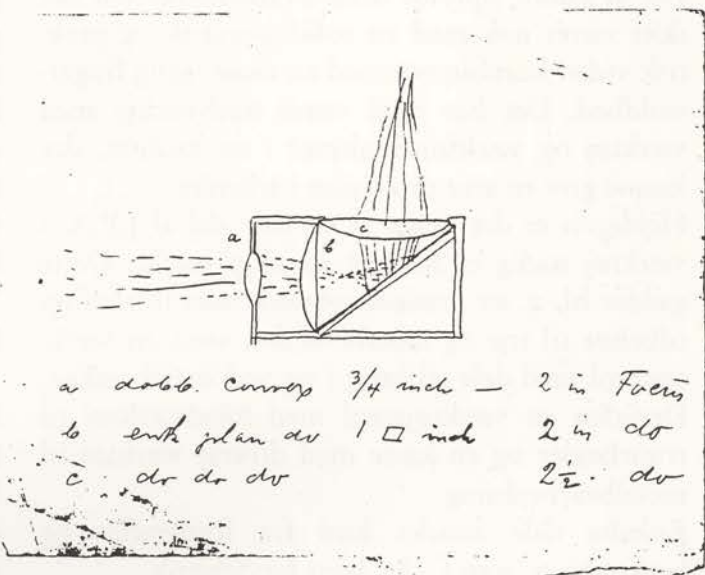 a
b
c
a dobb. convex 3/4 inch — 2 in Focus
b enk plan do 1 □ inch 2 in do
c do do do 2 1/2 . do